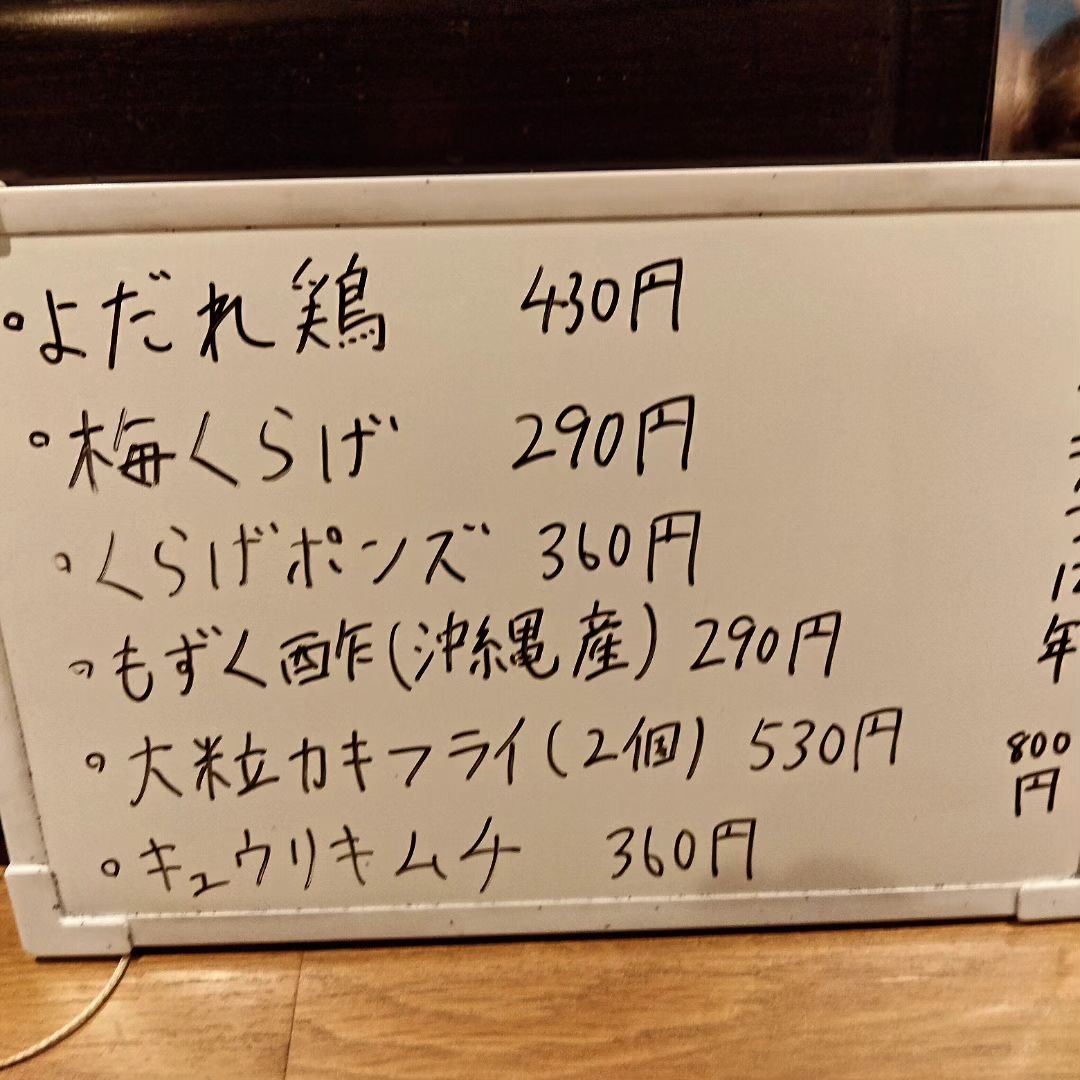 よだれ鶏 430円
梅くらげ 290円
くらげポンズ 360円
もずく酢(沖縄産) 290円
大粒カキフライ(2個) 530円
キュウリキムチ 360円
12
年
800
円